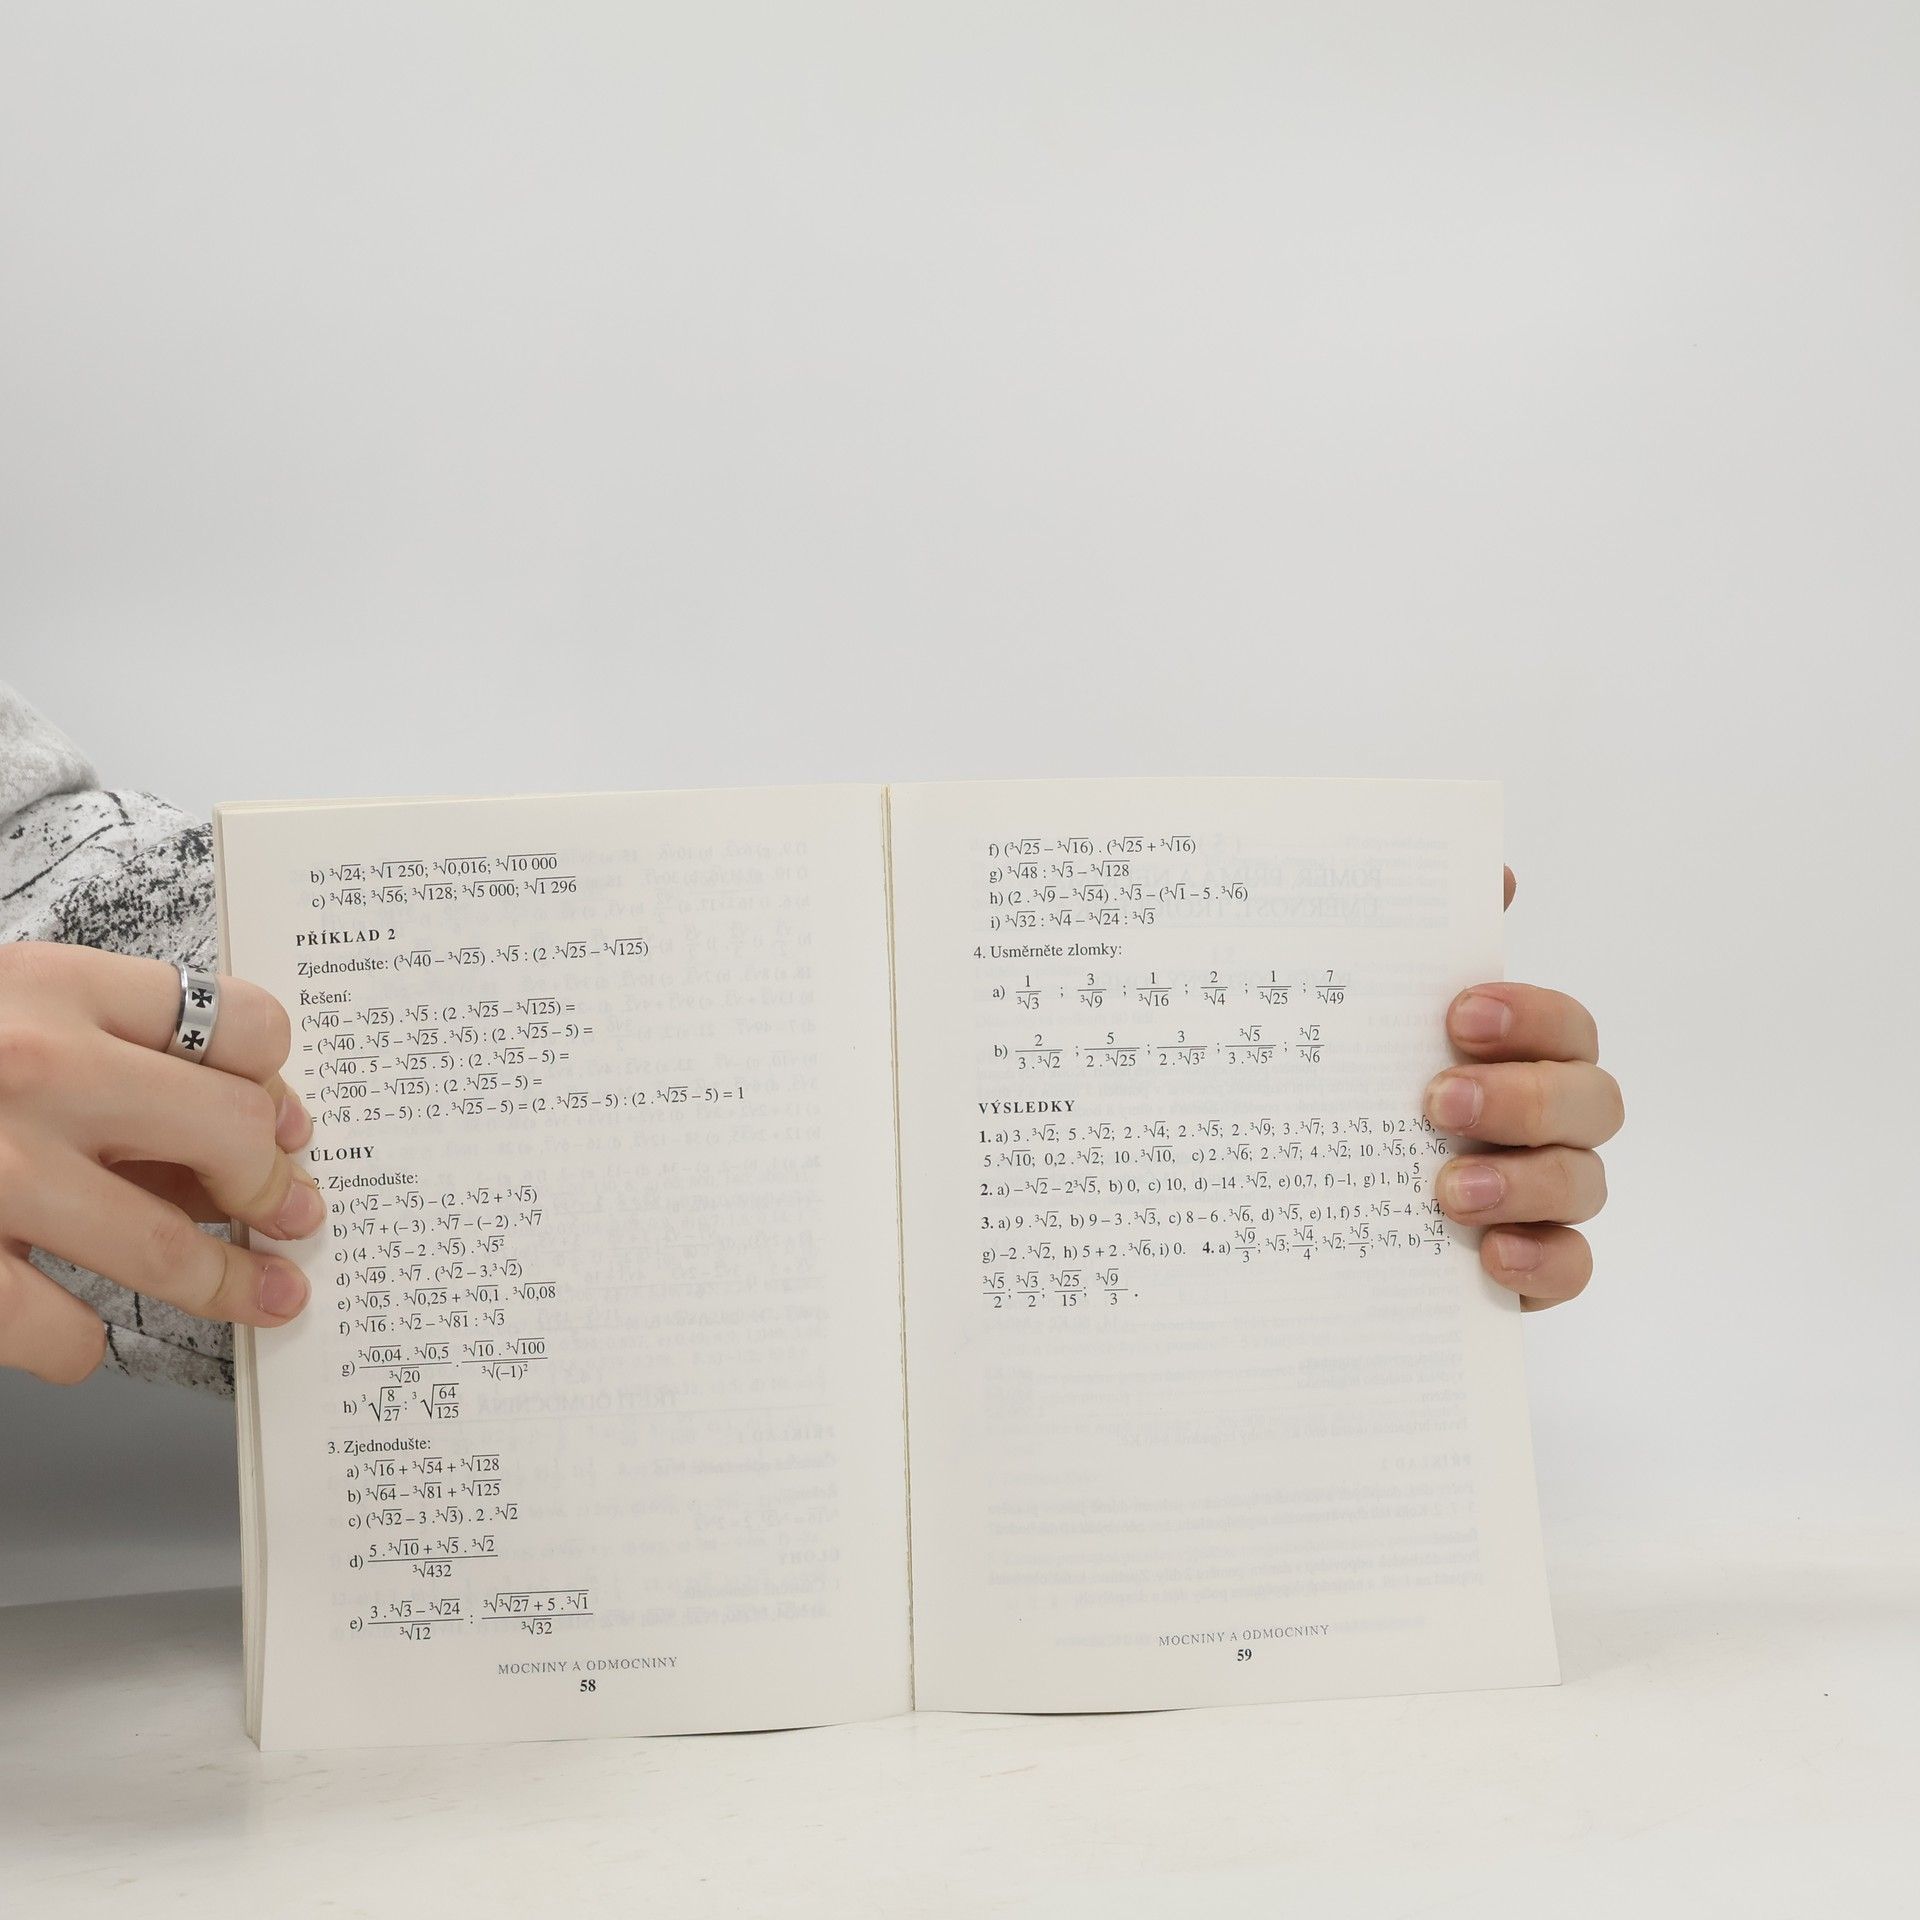 b) ³√24; ³√1 250; ³√0,016; ³√10 000
c) ³√48; ³√56; ³√128; ³√5 000; ³√1 296
PŘÍKLAD 2
Zjednodušte: (³√40 – ³√25) . ³√5 : (2 . ³√25 – ³√125)
Řešení:
(³√40 – ³√25) . ³√5 : (2 . ³√25 – ³√125) =
= (³√40 . ³√5 – ³√25 . ³√5) : (2 . ³√25 – 5) =
= (³√40 . 5 – ³√25 . 5) : (2 . ³√25 – 5) =
= (³√200 – ³√125) : (2 . ³√25 – 5) =
= (³√8 . 25 – 5) : (2 . ³√25 – 5) = (2 . ³√25 – 5) : (2 . ³√25 – 5) = 1
ÚLOHY
2. Zjednodušte:
a) (³√2 – ³√5) – (2 . ³√2 + ³√5)
b) ³√7 + (– 3) . ³√7 – (– 2) . ³√7
c) (4 . ³√5 – 2 . ³√5) . ³√5²
d) ³√49 . ³√7 . (³√2 – 3.³√2)
e) ³√0,5 . ³√0,25 + ³√0,1 . ³√0,08
f) ³√16 : ³√2 – ³√81 : ³√3
g) ³√0,04 . ³√0,5 / ³√20 . ³√10 . ³√100 / ³√(–1)²
h) ³√8/27 : ³√64/125
3. Zjednodušte:
a) ³√16 + ³√54 + ³√128
b) ³√64 – ³√81 + ³√125
c) (³√32 – 3 . ³√3) . 2 . ³√2
d) 5 . ³√10 + ³√5 . ³√2 / ³√432
e) 3 . ³√3 – ³√24 / ³√12 : ³√³√27 + 5 . ³√1 / ³√32
MOCNINY A ODMOCNINY
58
f) (³√25 – ³√16) . (³√25 + ³√16)
g) ³√48 : ³√3 – ³√128
h) (2 . ³√9 – ³√54) . ³√3 – (³√1 – 5 . ³√6)
i) ³√32 : ³√4 – ³√24 : ³√3
4. Usměrněte zlomky:
a) 1/³√3 ; 3/³√9 ; 1/³√16 ; 2/³√4 ; 1/³√25 ; 7/³√49
b) 2/3 . ³√2 ; 5/2 . ³√25 ; 3/2 . ³√3² ; ³√5/3 . ³√5² ; ³√2/³√6
VÝSLEDKY
1. a) 3 . ³√2; 5 . ³√2; 2 . ³√4; 2 . ³√5; 2 . ³√9; 3 . ³√7; 3 . ³√3, b) 2 . ³√3,
5 . ³√10; 0,2 . ³√2; 10 . ³√10, c) 2 . ³√6; 2 . ³√7; 4 . ³√2; 10 . ³√5; 6 . ³√6.
2. a) – ³√2 – 2³√5, b) 0, c) 10, d) –14 . ³√2, e) 0,7, f) –1, g) 1, h) 5/6.
3. a) 9 . ³√2, b) 9 – 3 . ³√3, c) 8 – 6 . ³√6, d) ³√5, e) 1, f) 5 . ³√5 – 4 . ³√4,
g) –2 . ³√2, h) 5 + 2 . ³√6, i) 0. 4. a) ³√9/3; ³√3; ³√4/4; ³√2; ³√5/5; ³√7, b) ³√4/3;
³√5/2; ³√3/2; ³√25/15; ³√9/3 .
MOCNINY A ODMOCNINY
59